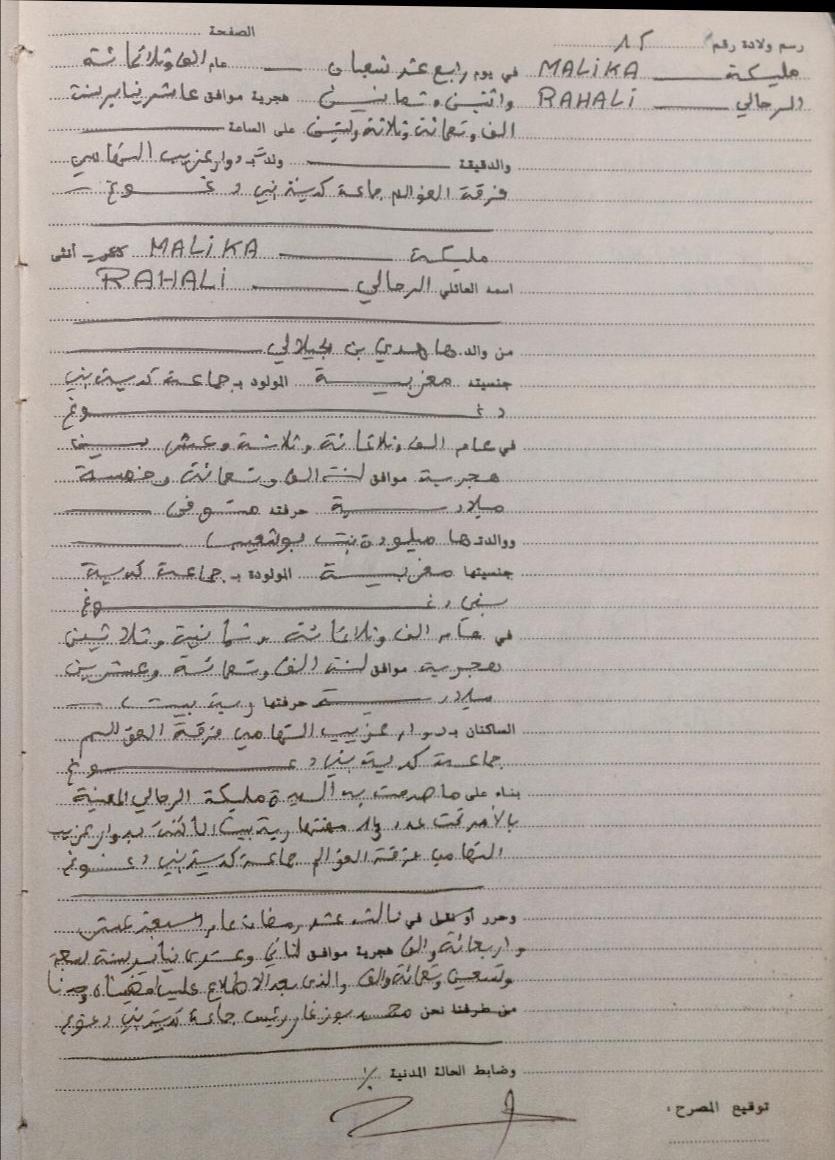 الصفحة
رسم ولادة رقم 15
مليكة MALiKA في يوم رابع عشر شعبان عام الف وثلاثمائة
الرحالي RAHALi واثنين وثمانين هجرية موافق عاشر يناير سنة
الف وتسعمائة وثلاثة وستين على الساعة
والدقيقة ولدت بـ دوار عزيب التهامي
فرقة العوالم جماعة كدية بني دغوغ
مليكة MALiKA ذكر - أنثى
اسمه العائلي الرحالي RAHALi
من والدها هدي بن الجيلالي
جنسيته مغربية المولود بـ جماعة كدية بني
دغوغ
في عام الف وثلاثمائة وثلاثة وعشرين
هجرية موافق لسنة الف وتسعمائة وخمسة
ميلادية حرفته متوفى
ووالدتها ميلودة بنت بوشعيب
جنسيتها مغربية المولودة بـ جماعة كدية
بني دغوغ
في عام الف وثلاثمائة وثمانية وثلاثين
هجرية موافق لسنة الف وتسعمائة وعشرين
ميلادية حرفتها ربة بيت
الساكنان بـ دوار عزيب التهامي فرقة العوالم
جماعة كدية بني دغوغ
بناء على ما صرحت به السيدة مليكة الرحالي المعنية
بالأمر تحت عدد مهنتها ربة بيت الساكنة بدوار عزيب
التهامي فرقة العوالم جماعة كدية بني دغوغ
وحرر أو نقل في ثالث عشر رمضان عام سبعة عشر
واربعمائة والف هجرية موافق لثاني وعشري يناير سنة سبعة
وتسعين وتسعمائة والف والذي بعد الاطلاع عليه امضيناه
من طرفنا نحن محمد رئيس جماعة كدية بني دغوغ
وضابط الحالة المدنية ./.
توقيع المصرح :